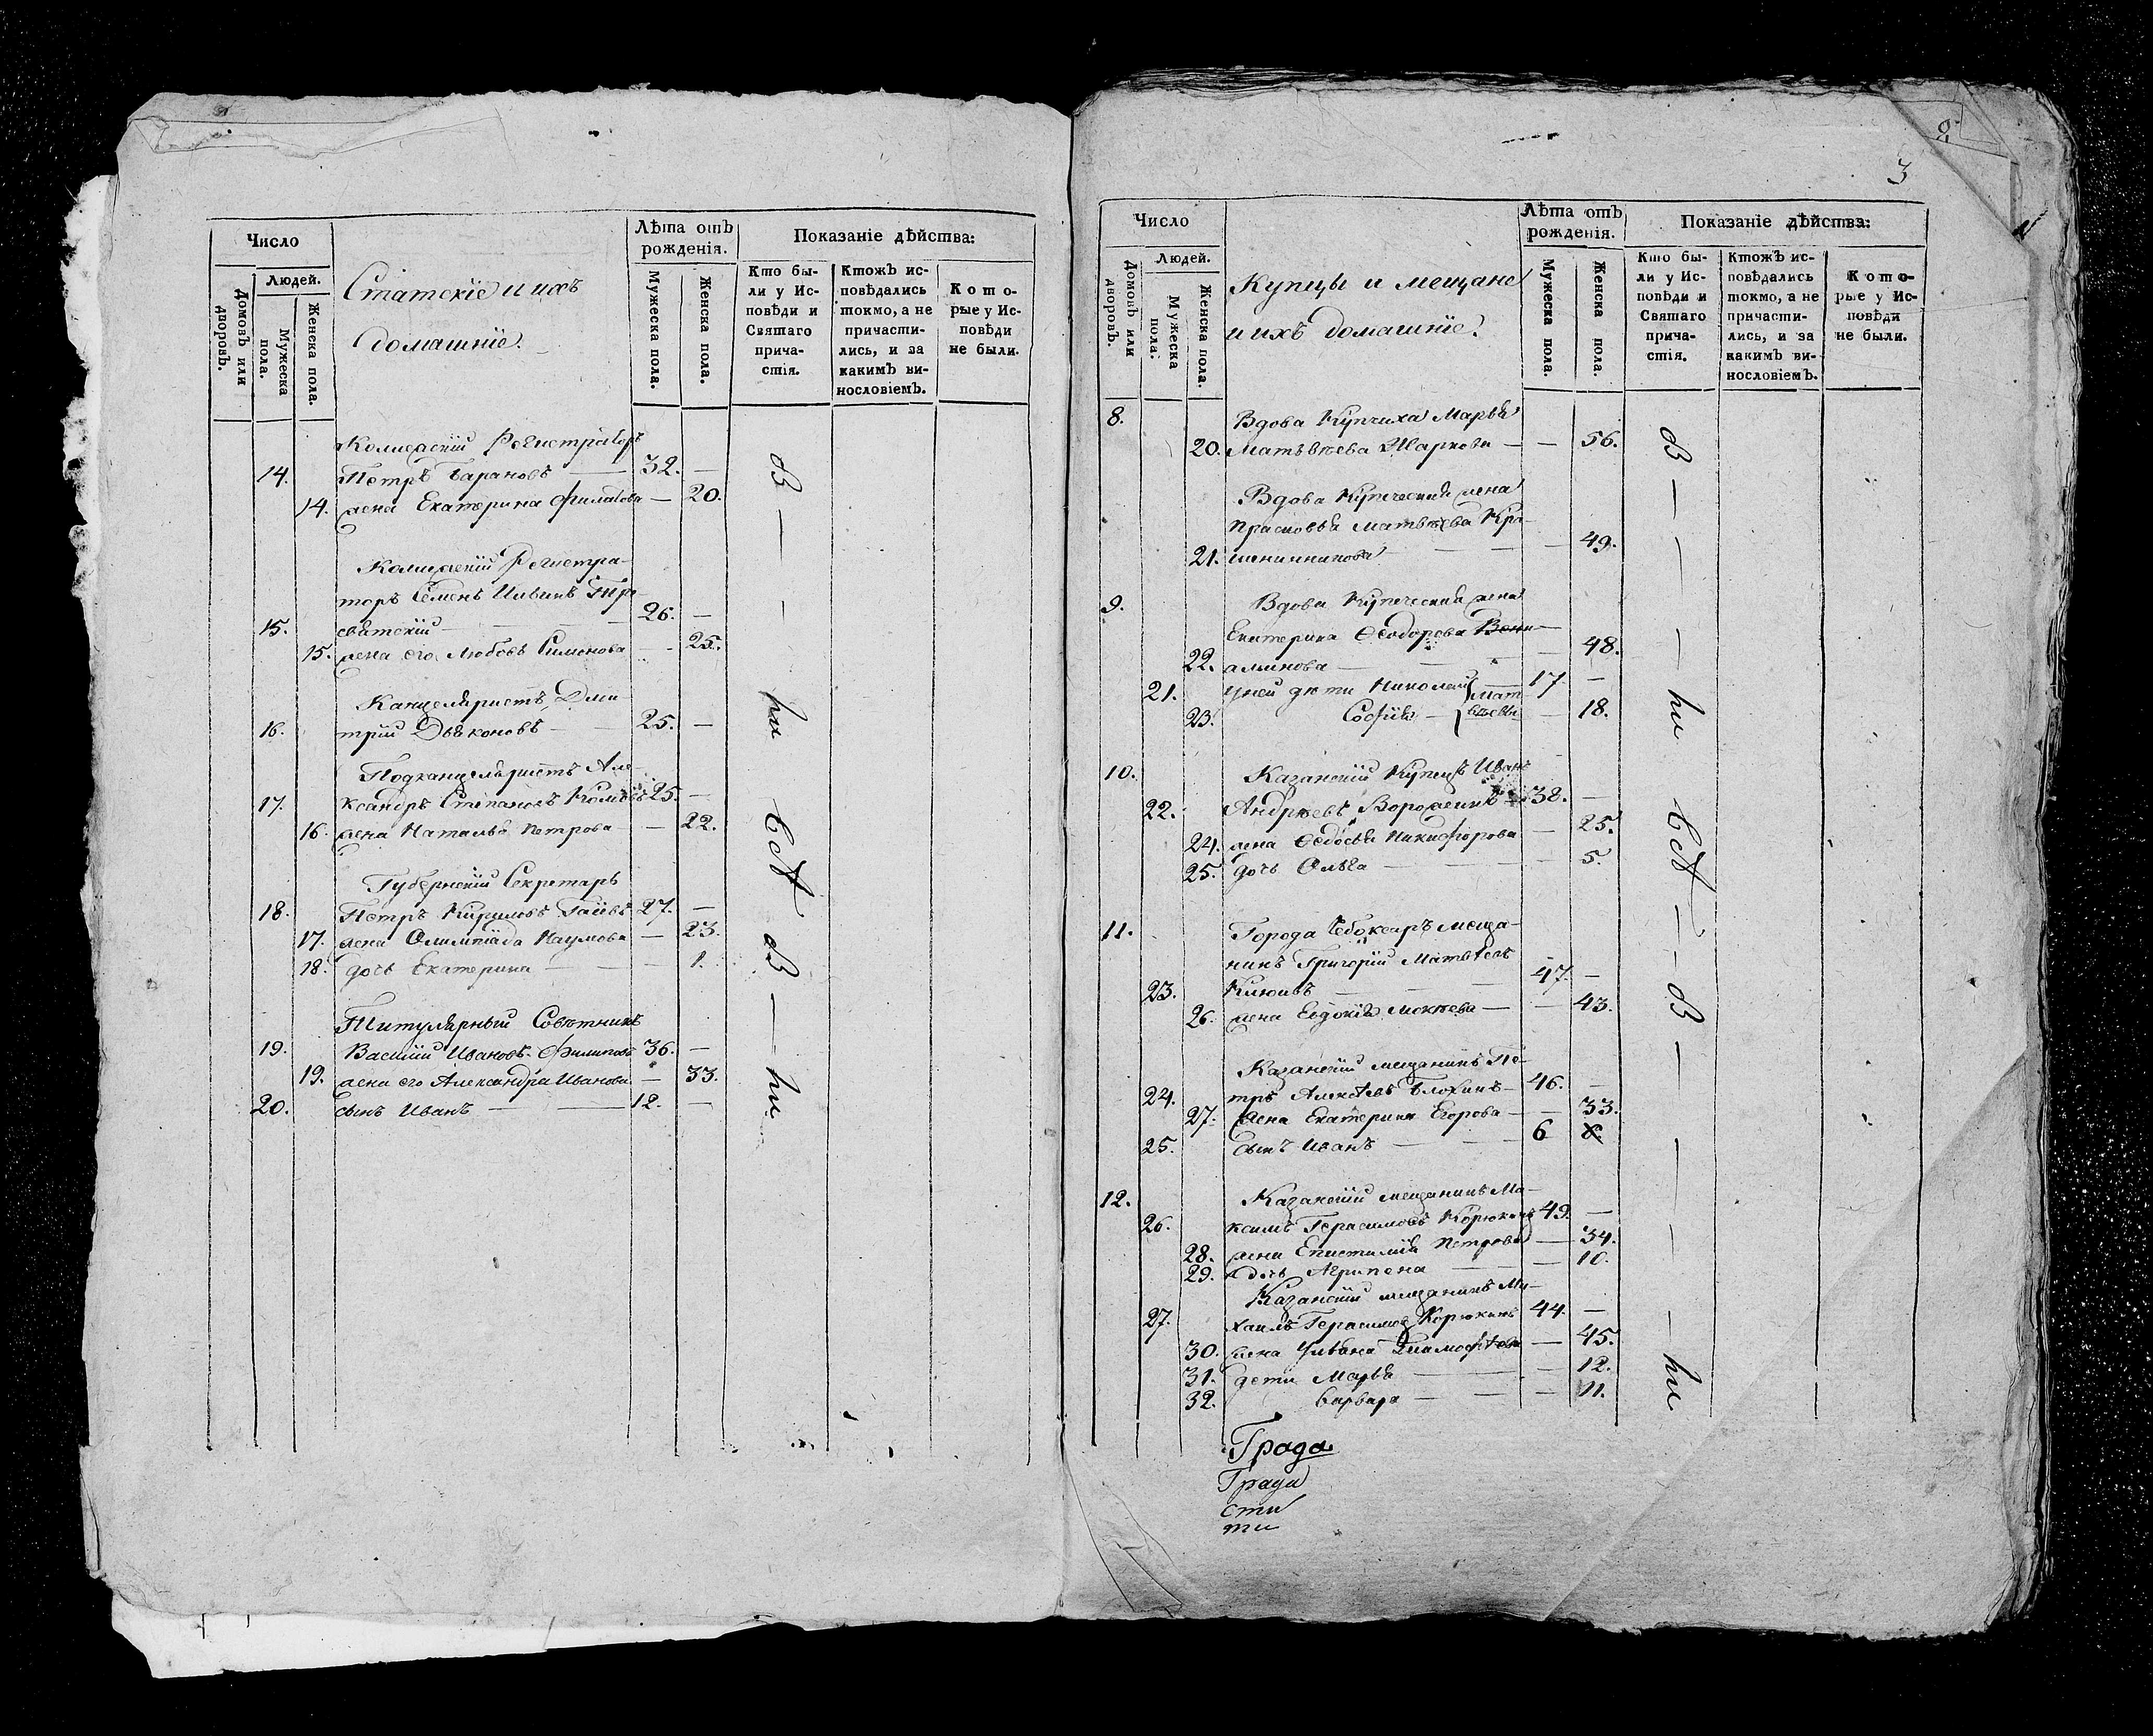 Число
Людей.
Домовъ или дворовъ.
Мужеска пола.
Женска пола.
Статскіе и ихъ
домашніе.
Лѣта отъ рожденія.
Мужеска пола.
Женска пола.
Показаніе дѣйства:
Кто были у Исповѣди и Святаго причастія.
Ктожъ исповѣдались токмо, а не причастились, и за какимъ винословіемъ.
Которые у Исповѣди не были.
Колежскій Регистраторъ
14. Петръ Барановъ — 32. —
14. жена Екатерина Филатова — 20.
Колежскій Регистра-
торъ Семенъ Ильинъ
15. святскій — 26. —
15. жена его Любовь Симонова — 25.
Канцеляристъ Дми-
16. трій Дьяконовъ — 25. —
Подканцеляристъ Але-
17. ксандръ Степановъ 25. —
16. жена Наталья Петрова — 22.
Губернскій Секретарь
18. Петръ Кириловъ 27. —
17. жена Олимпіада Наумова — 23.
18. дочь Екатерина — 1.
Титулярный Совѣтникъ
19. Василій Ивановъ Филиповъ 36. —
19. жена его Александра Иванова — 33.
20. сынъ Иванъ — 12. —
В — — — ли В — ли
2
3
Число
Людей.
Домовъ или дворовъ.
Мужеска пола.
Женска пола.
Купцы и мещане
и ихъ домашніе.
Лѣта отъ рожденія.
Мужеска пола.
Женска пола.
Показаніе дѣйства:
Кто были у Исповѣди и Святаго причастія.
Ктожъ исповѣдались токмо, а не причастились, и за какимъ винословіемъ.
Которые у Исповѣди не были.
8. Вдова Купчиха Марья
20. Матвѣева Шаркова — — 56.
Вдова Купеческая жена
Прасковья Матвѣева Кра-
21. шенинникова — — 49.
9. Вдова Купеческая жена
Екатерина Ѳеодорова Вени-
22. аминова — — 48.
21. у ней дѣти Николай Мат- 17. —
23. Софія — вѣевы — 18.
10. Казанскій Купецъ Иванъ
22. Андреевъ Ворожеинъ 38. —
24. жена Ѳедосья Никифорова — 25.
25. дочь Ольга — 5.
11. Города Чебоксаръ меща-
нинъ Григорій Матвѣевъ
23. — 47. —
26. жена Евдокія — 43.
Казанскій мещанинъ Пе-
24. тръ Алексѣевъ Блохинъ — 46. —
27. жена Екатерина Егорова — — 33.
25. сынъ Иванъ — 6
12. Казанскій мещанинъ Ма-
26. ксимъ Герасимовъ Корюкинъ 49. —
28. жена Епистимія Петрова — 34.
29. дочь Агрипена — 10.
Казанскій мещанинъ Ми-
27. хаилъ Герасимовъ Корюкинъ 44. —
30. жена Ульяна — 45.
31. дети Марья — 12.
32. Варвара — — 11.
В — — — ли — В — — — — ли
Града
Града
сти
ти